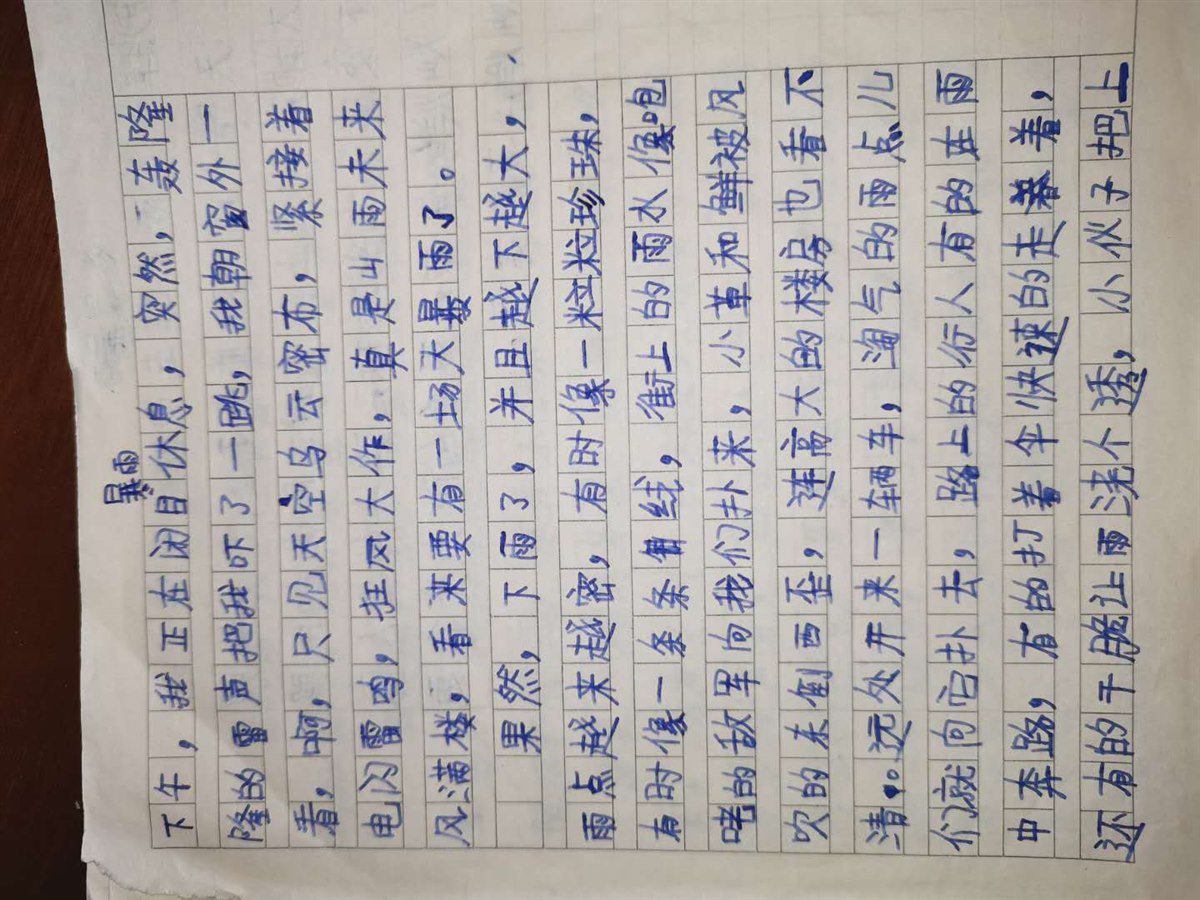 暴雨
下午，我正在闭目休息，突然，轰隆
隆的雷声把我吓了一跳，我朝窗外一
看，啊，只见天空乌云密布，紧接着
电闪雷鸣，狂风大作，真是山雨未来
风满楼，看来要有一场大暴雨了。
果然，下雨了，并且越下越大，
雨点越来越密，有时像一粒粒珍珠，
有时像一条条线，街上的雨水像咆
哮的敌军向我们扑来，小草和鲜被风
吹的东倒西歪，连高大的楼房也看不
清。远处开来一辆车，淘气的雨点儿
们就向它扑去，路上的行人有的在雨
中奔跑，有的打着伞快速的走着，
还有的干脆让雨浇个透，小伙子把上